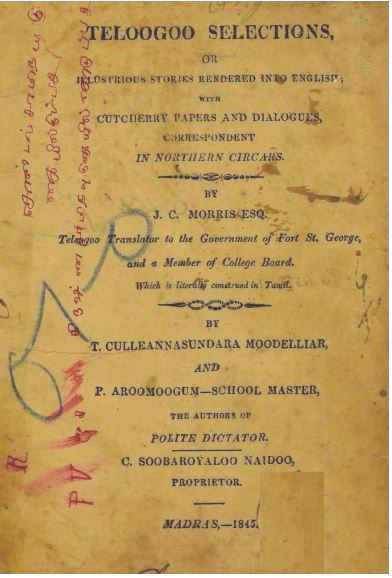 TELOOGOO SELECTIONS,
OR
ILLUSTRIOUS STORIES RENDERED INTO ENGLISH;
WITH
CUTCHERRY PAPERS AND DIALOGUES,
CORRESPONDENT
IN NORTHERN CIRCARS.
BY
J. C. MORRIS ESQ.
Teloogoo Translator to the Government of Fort St. George,
and a Member of College Board.
Which is literally construed in Tamil.
BY
T. CULLEANNASUNDARA MOODELLIAR,
AND
P. AROOMOOGUM—SCHOOL MASTER,
THE AUTHORS OF
POLITE DICTATOR.
C. SOOBAROYALOO NAIDOO,
PROPRIETOR.
MADRAS,—1845.